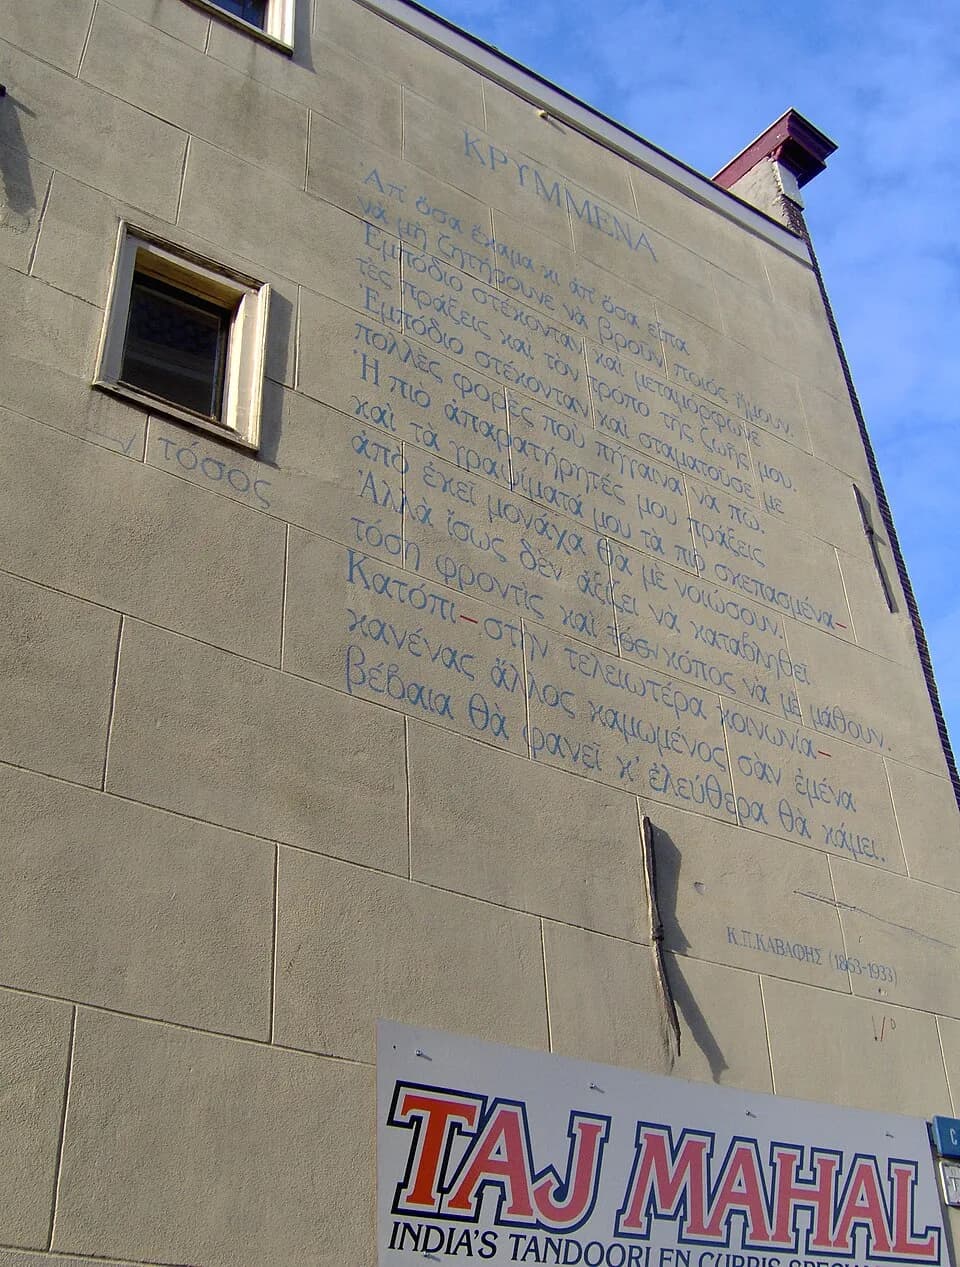 ΚΡΥΜΜΕΝΑ
Ἀπ' ὅσα ἔκαμα κι ἀπ' ὅσα εἶπα
νὰ μὴ ζητήσουνε νὰ βροῦν ποιὸς ἤμουν.
Ἐμπόδιο στέκονταν καὶ μεταμόρφωνε
τὲς πράξεις καὶ τὸν τρόπο τῆς ζωῆς μου.
Ἐμπόδιο στέκονταν καὶ σταματοῦσε με
πολλὲς φορὲς ποὺ πήγαινα νὰ πῶ.
Ἡ πιὸ ἀπαρατήρητές μου πράξεις
καὶ τὰ γραψίματά μου τὰ πιὸ σκεπασμένα—
ἀπὸ ἐκεῖ μονάχα θὰ μὲ νοιώσουν.
Ἀλλὰ ἴσως δὲν ἀξίζει νὰ καταβληθεῖ
τόση φροντὶς καὶ κόπος νὰ μὲ μάθουν.
Κατόπι—στὴν τελειωτέρα κοινωνία—
κανένας ἄλλος καμωμένος σὰν ἐμένα
βέβαια θὰ φανεῖ κ' ἐλεύθερα θὰ κάμει.
√ τόσος
Κ.Π.ΚΑΒΑΦΗΣ (1863-1933)
TAJ MAHAL
INDIA'S TANDOORI EN CURRIS